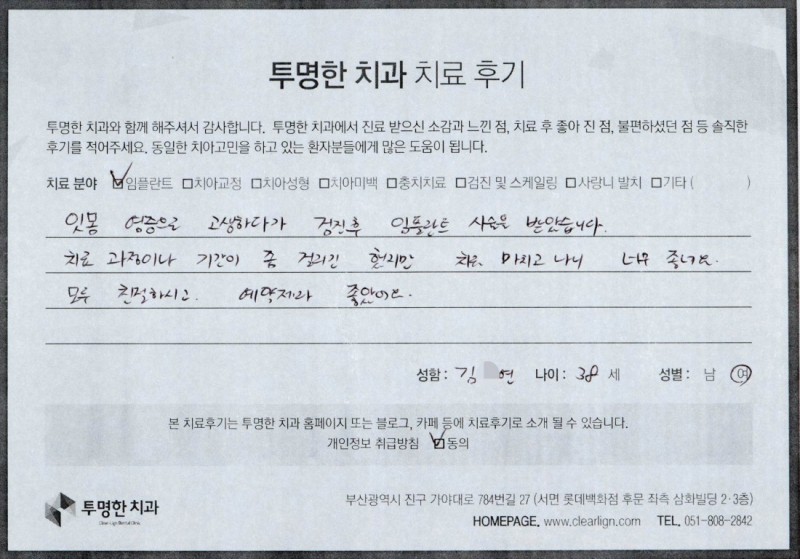 투명한 치과 치료 후기
투명한 치과와 함께 해주셔서 감사합니다. 투명한 치과에서 진료 받으신 소감과 느낀 점, 치료 후 좋아 진 점, 불편하셨던 점 등 솔직한
후기를 적어주세요. 동일한 치아고민을 하고 있는 환자분들에게 많은 도움이 됩니다.
치료 분야 ☑임플란트 □치아교정 □치아성형 □치아미백 □충치치료 □검진 및 스케일링 □사랑니 발치 □기타 ( )
잇몸 염증으로 고생하다가 검진후 임플란트 시술을 받았습니다.
치료 과정이나 기간이 좀 걸리긴 했지만 치료 마치고 나니 너무 좋네요.
모두 친절하시고. 예약제라 좋았어요.
성함 : 김 연 나이 : 38 세 성별 : 남 여
본 치료후기는 투명한 치과 홈페이지 또는 블로그, 카페 등에 치료후기로 소개 될 수 있습니다.
개인정보 취급방침 ☑동의
투명한 치과
부산광역시 진구 가야대로 784번길 27 (서면 롯데백화점 후문 좌측 삼화빌딩 2·3층)
HOMEPAGE. www.clearlign.com TEL. 051-808-2842